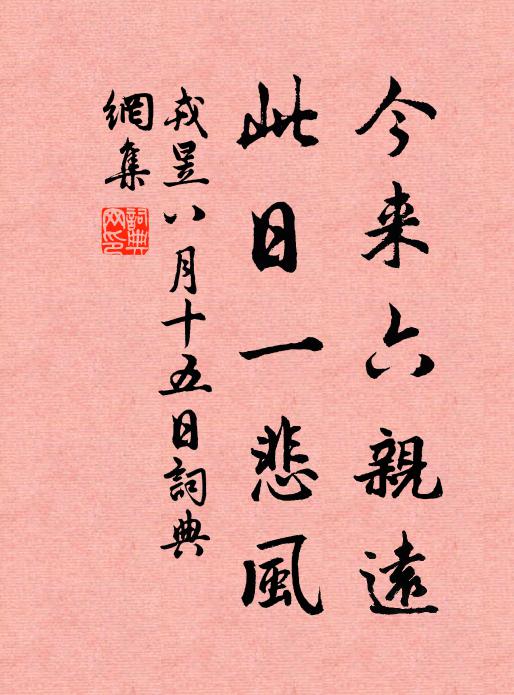 今来六親遠
此日一悲風
戎昱八月十五日詞典
網集
詞典网印